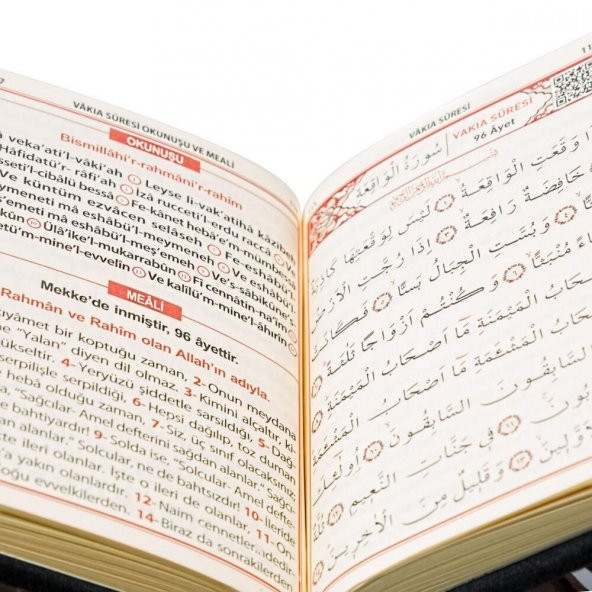 VÂKIA SÛRESİ OKUNUŞU VE MEALİ
OKUNUŞU
Bismillâhi'r-rahmâni'r-rahîm
veka'ati'l-vâkı'ah ① Leyse li-vak'atihâ kâzibeh
Hâfidatü'r-râfi'ah ③ İzâ rucceti'l-erdu raccâ
sseti'l-cibâlü bessâ ⑤ Fe-kânet hebâ'e'm-mümbessâ
Ve küntüm ezvâcen selâseh Fe-eshâbü'l-
meymeneti mâ eshâbü'l-meymeneh Ve eshâbü'l-
ş'emeti mâ eshâbü'l-meş'emeh Ve's-sâbikûne's-
kûn ⑩ Ülâike'l-mukarrabûn ⑪ Fî cennâtin-na'îm
etü'm-mine'l-evvelîn ⑬ Ve kalîlü'm-mine'l-âhirîn
MEÂLİ
Mekke'de inmiştir. 96 âyettir.
Rahmân ve Rahîm olan Allah'ın adıyla.
kıyâmet bir koptuğu zaman, 2- Onun meydana
ne "Yalan" diyen dil olmaz. 3- Kimini alçaltır, ki-
yükseltir. 4- Yeryüzü şiddetle sarsıldığı, 5- Dağ-
serpilişle serpildiği, 6- Hepsi dağılıp, toz duman
hebâ olduğu zaman, 7- Siz, üç sınıf olacaksınız
"Sağcılar- Amel defterini sağdan alanlar." Sağcılar
bahtiyardır! 9- Solda ise, "Solcular. Amel defte-
an alanlar." Solcular, ne de bahtsızdır! 10- İleride
şte ileri olanlar. İşte o ileri de olanlar, 11- On-
a yakın olanlardır. 12- Naim cennetlerindedir.
Çoğu evvelkilerden. 14- Biraz da sonrakilerden
VÂKIA SÛRESİ
VÂKIA SÛRESİ
96 Âyet
سُورَةُ الْوَاقِعَةِ
وَقَعَتِ الْوَاقِعَةُ ۝١ لَيْسَ لِوَقْعَتِهَا كَاذِبَةٌ
خَافِضَةٌ رَافِعَةٌ ۝٣ إِذَا رُجَّتِ الْأَرْضُ
وَبُسَّتِ الْجِبَالُ بَسًّا ۝٥ فَكَانَتْ
هَبَاءً مُنْبَثًّا ۝٦ وَكُنْتُمْ أَزْوَاجًا ثَلٰثَةً
فَأَصْحَابُ الْمَيْمَنَةِ مَا أَصْحَابُ الْمَيْمَنَةِ
وَأَصْحَابُ الْمَشْـَٔمَةِ مَا أَصْحَابُ الْمَشْـَٔمَةِ
وَالسَّابِقُونَ السَّابِقُونَ ۝١٠ أُولٰئِكَ
فِي جَنَّاتِ النَّعِيمِ
الْأَوَّلِينَ ۝١٣ وَقَلِيلٌ مِنَ الْآخِرِينَ